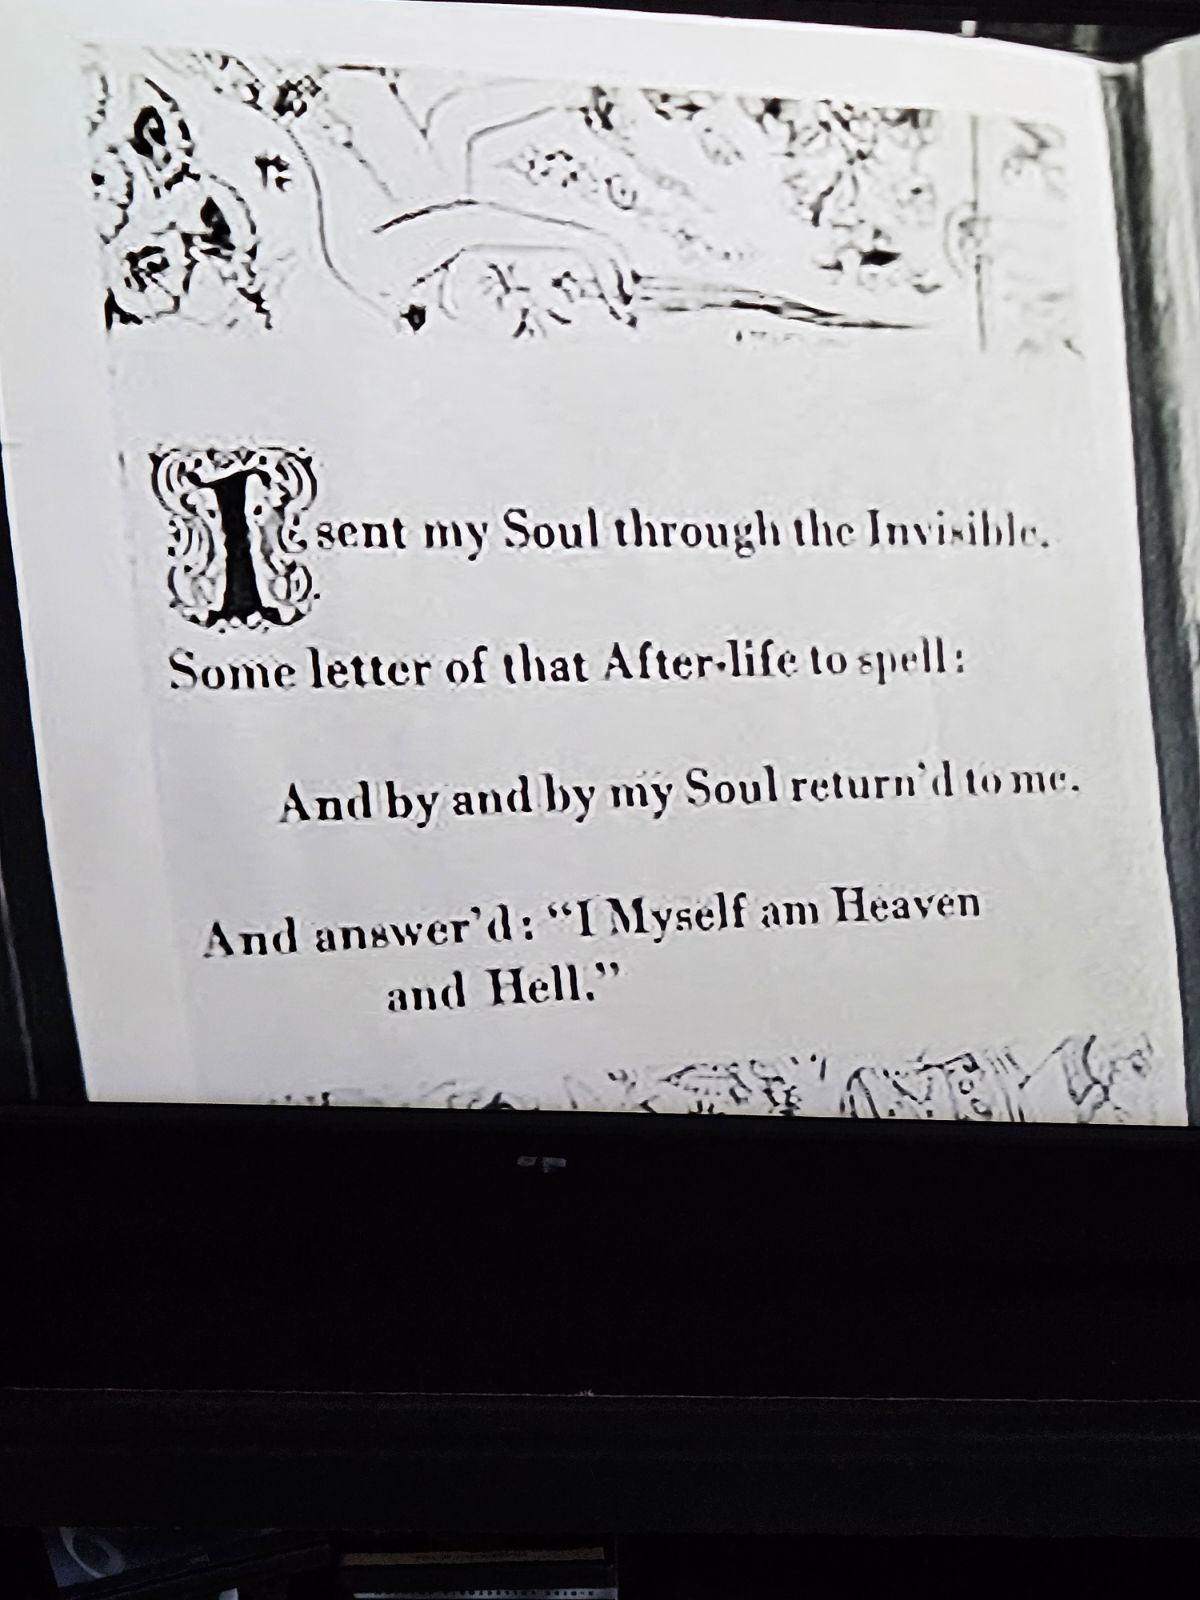 I sent my Soul through the Invisible.
Some letter of that After-life to spell:
And by and by my Soul return'd to me.
And answer'd: "I Myself am Heaven
and Hell."